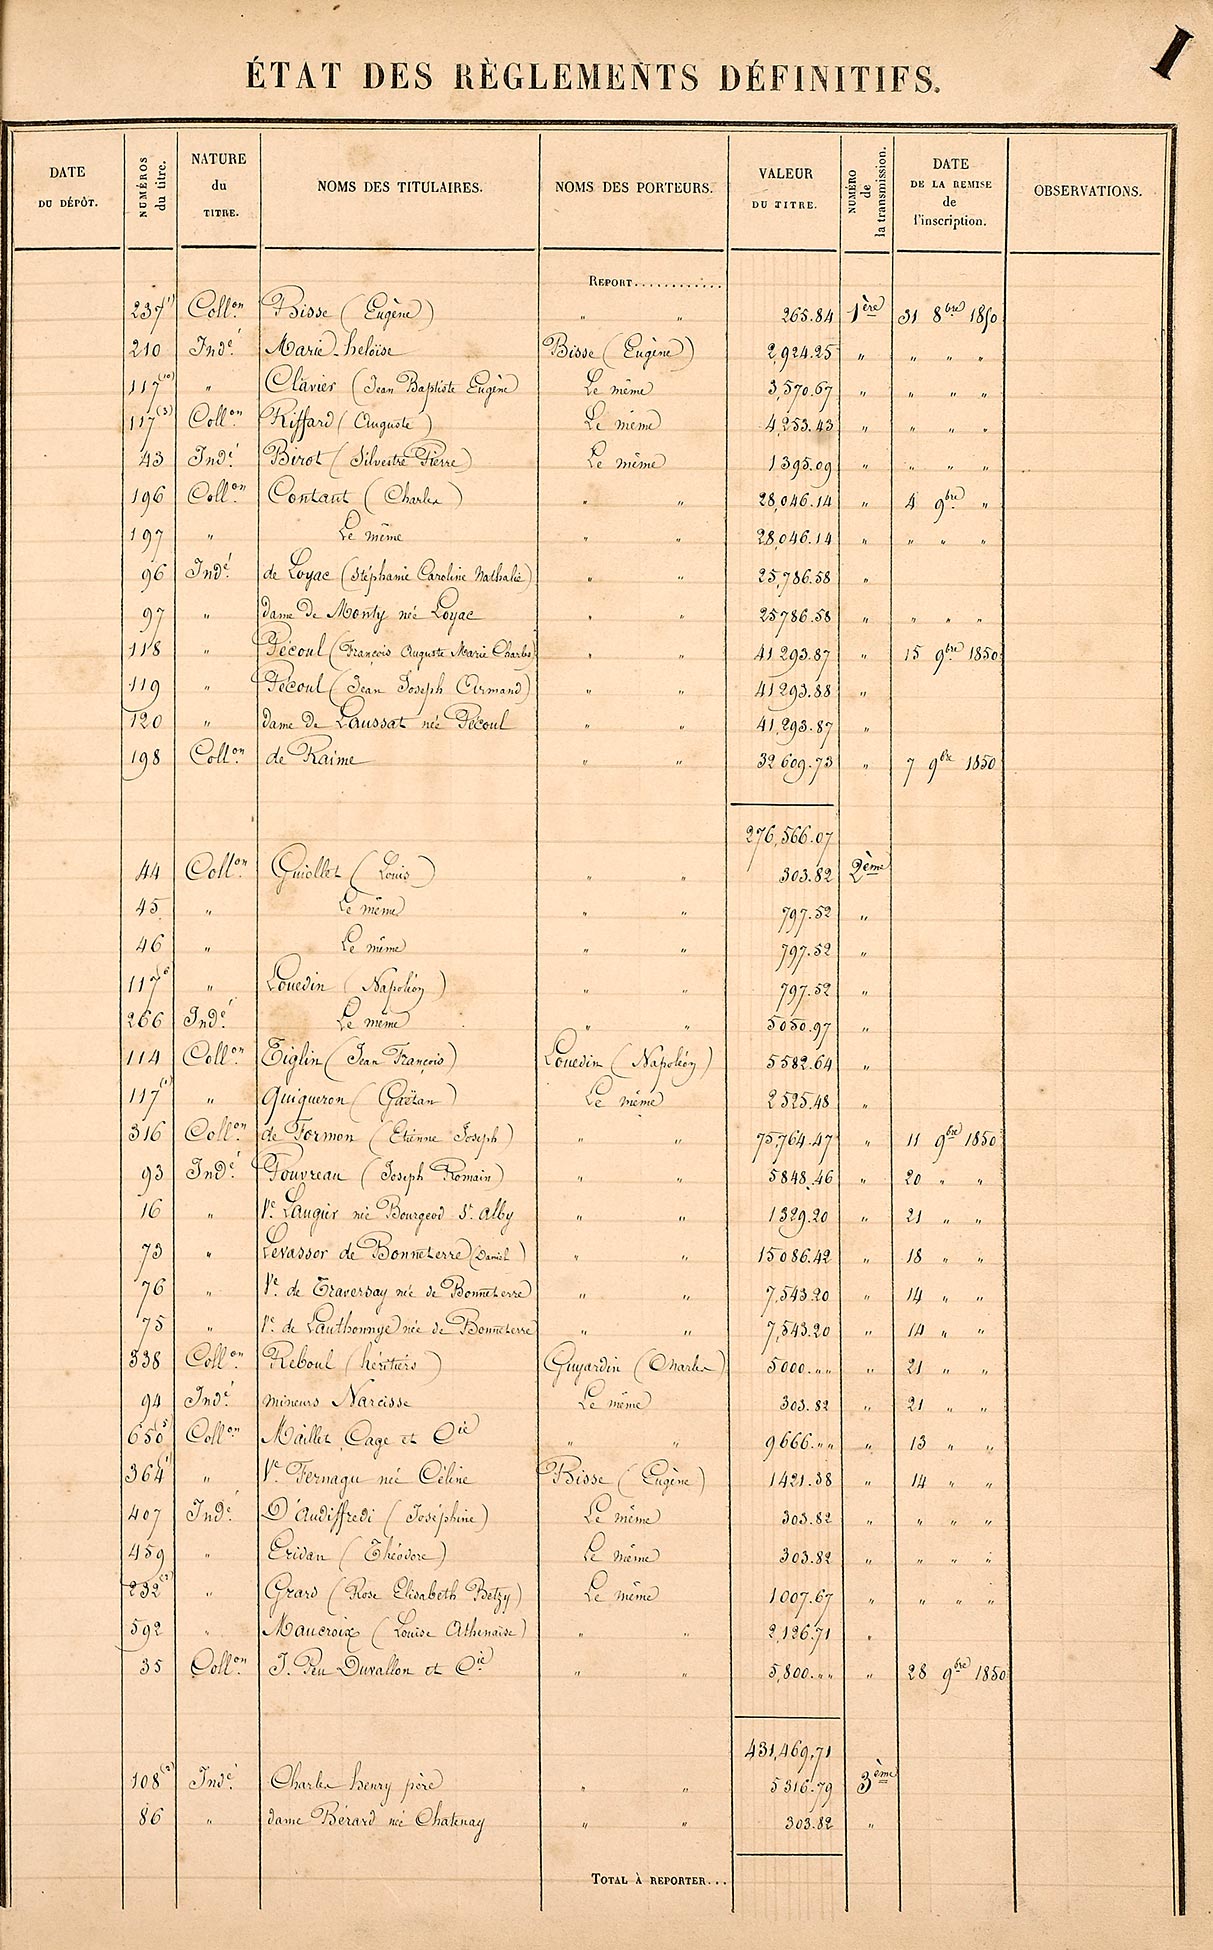 I
ÉTAT DES RÈGLEMENTS DÉFINITIFS.
DATE DU DÉPÔT. NUMÉROS du titre. NATURE du TITRE. NOMS DES TITULAIRES. NOMS DES PORTEURS. VALEUR DU TITRE. NUMÉRO de la transmission. DATE DE LA REMISE de l'inscription. OBSERVATIONS.
REPORT............
237(1) Coll.on Bisse (Eugène) " " 265.84 1ère 31 8bre 1850
210 Ind.é Marie-heloïse Bisse (Eugène) 2,924.25 " " " "
117(10) " Clavier (Jean Baptiste Eugène) Le même 3,570.67 " " " "
117(3) Coll.on Riffard (Auguste) Le même 4,253.43 " " " "
43 Ind.é Birot (Silvestre Pierre) Le même 1395.09 " " " "
196 Coll.on Contaut (Charles) " " 28,046.14 " 4 9bre "
197 " Le même " " 28,046.14 " " " "
96 Ind.é de Loyac (Stéphanie Caroline Nathalie) " " 25,786.58 "
97 " dame de Monty née Loyac " " 25786.58 " " " "
118 " Pécoul (François Auguste Marie Charles) " " 41293.87 " 15 9bre 1850
119 " Pécoul (Jean Joseph Armand) " " 41293.88 "
120 " dame de Laussat née Pécoul " " 41,293.87 "
198 Coll.on de Raime " " 32609.73 " 7 9bre 1850
276,566.07
44 Coll.on Guiollet (Louis) " " 303.82 2ème
45 " Le même " " 797.52 "
46 " Le même " " 797.52 "
117(6 " Louedin (Napoléon) " " 797.52 "
266 Ind.é Le même " " 5050.97 "
114 Coll.on Tiglin (Jean François) Louedin (Napoléon) 5582.64 "
117(1) " Quiqueron (Gaëtan) Le même 2525.48 "
316 Coll.on de Formon (Etienne Joseph) " " 75,764.47 " 11 9bre 1850
93 Ind.é Fouvreau (Joseph Romain) " " 5848.46 " 20 " "
16 " Ve Laugier née Bourgeod St. Alby " " 1329.20 " 21 " "
73 " Levassor de Bonneterre (Daniel) " " 15086.42 " 18 " "
76 " Ve. de Traversay née de Bonneterre " " 7,543.20 " 14 " "
75 " Ve. de Lauthonnye née de Bonneterre " " 7,543.20 " 14 " "
338 Coll.on Reboul (héritiers) Guyardin (Charles) 5000."" " 21 " "
94 Ind.é mineurs Narcisse Le même 303.82 " 21 " "
650(5) Coll.on Maillet, Cage et Cie " " 9666."" " 13 " "
364(1 " Ve. Fernagu née Céline Bisse (Eugène) 1421.38 " 14 " "
407 Ind.é D'Audiffredi (Joséphine) Le même 303.82 " " " "
459 " Eridan (Théodore) Le même 303.82 " " " "
232(2) " Grard (Rose Elisabeth Betzy) Le même 1007.67 " " " "
592 " Maucroix (Louise Athenaïse) " " 2,126.71 "
35 Coll.on J. Peu Duvallon et Cie " " 5,800."" " 28 9bre 1850
431,469,71
108(2) Ind.é Charles henry père " " 5316.79 3ème
86 " dame Bérard née Chatenay " " 303.82 "
TOTAL À REPORTER...